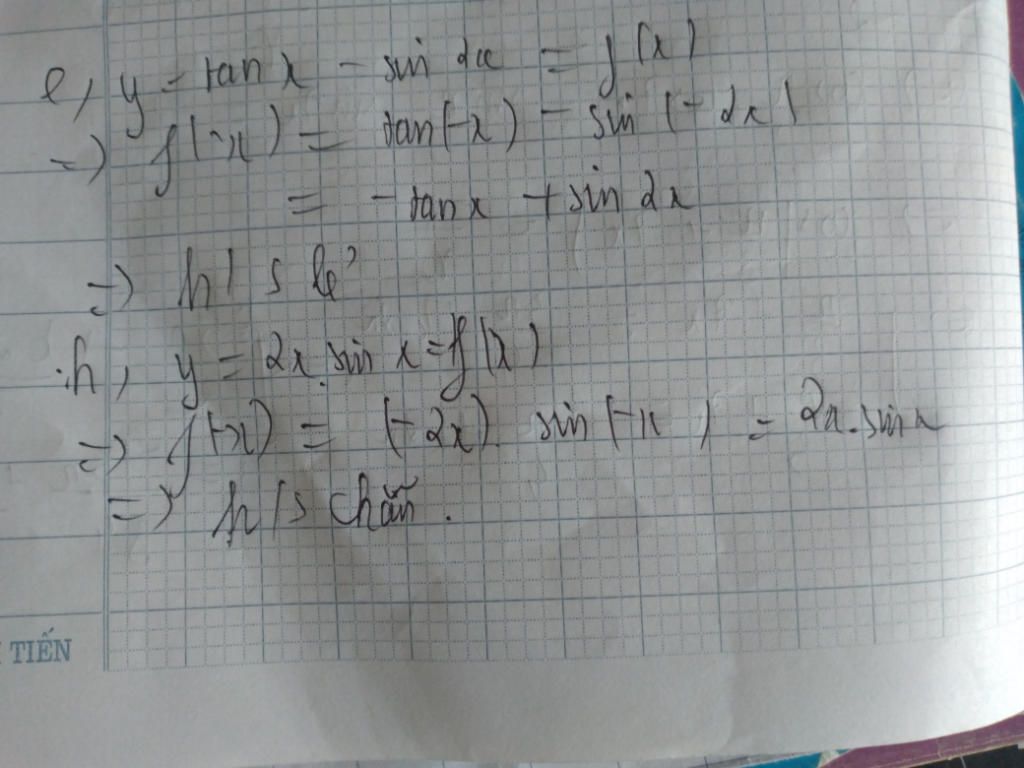 e, y = tan x - sin 2x = f(x)
=> f(-x) = tan(-x) - sin(-2x)
= -tan x + sin 2x
=> h/s lẻ
h, y = 2x.sin x = f(x)
=> f(-x) = (-2x). sin(-x) = 2x.sin x
=> h/s chẵn.
TIẾN